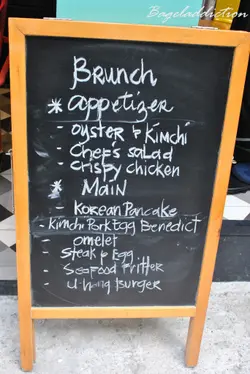 Bageladdiction
Brunch
* appetizer
- oyster & Kimchi
- Chef's salad
- Crispy chicken
* Main
- Korean Pancake
- Kimchi Pork Egg Benedict
- omelet
- Steak & Egg
- Seafood Fritter
- U-Hang Burger